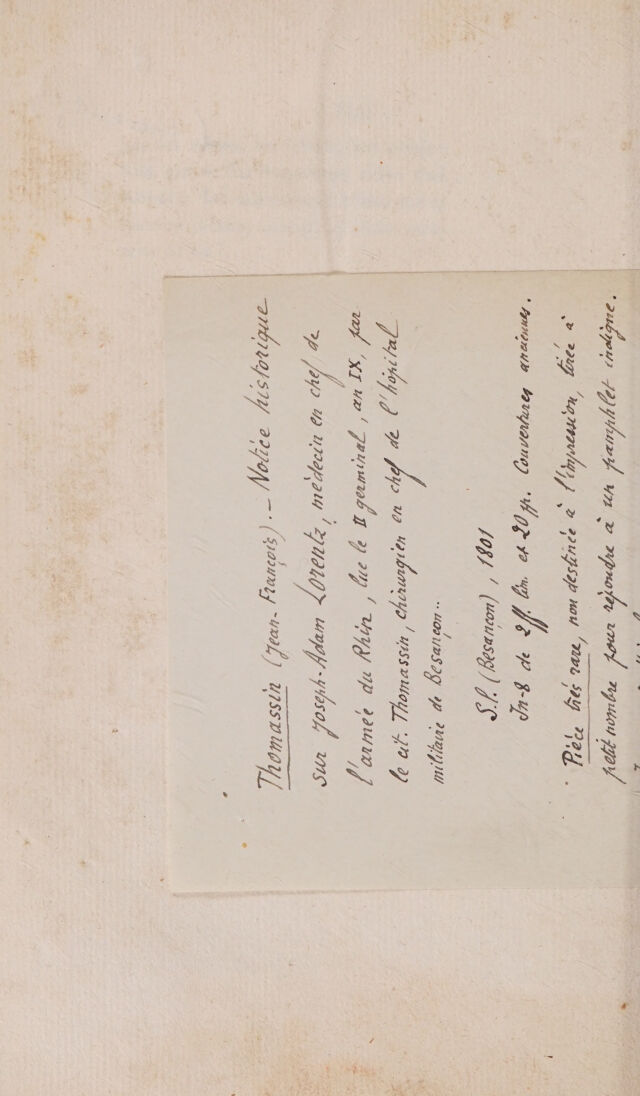 Thomassin (Jean-François). – Notice historique
sur Joseph-Adam Lorentz, médecin en chef de
l'armée du Rhin, lue le II germinal, an IX, par
le cit. Thomassin, chirurgien en chef de l'hôpital
militaire de Besançon..
S.l. (Besançon), 1801
In-8 de 2 ff. lim et 20 pp. Couvertures anciennes.
Pièce très rare, non destinée à l'impression, tirée à
petit nombre pour répondre à un pamphlet indigne.